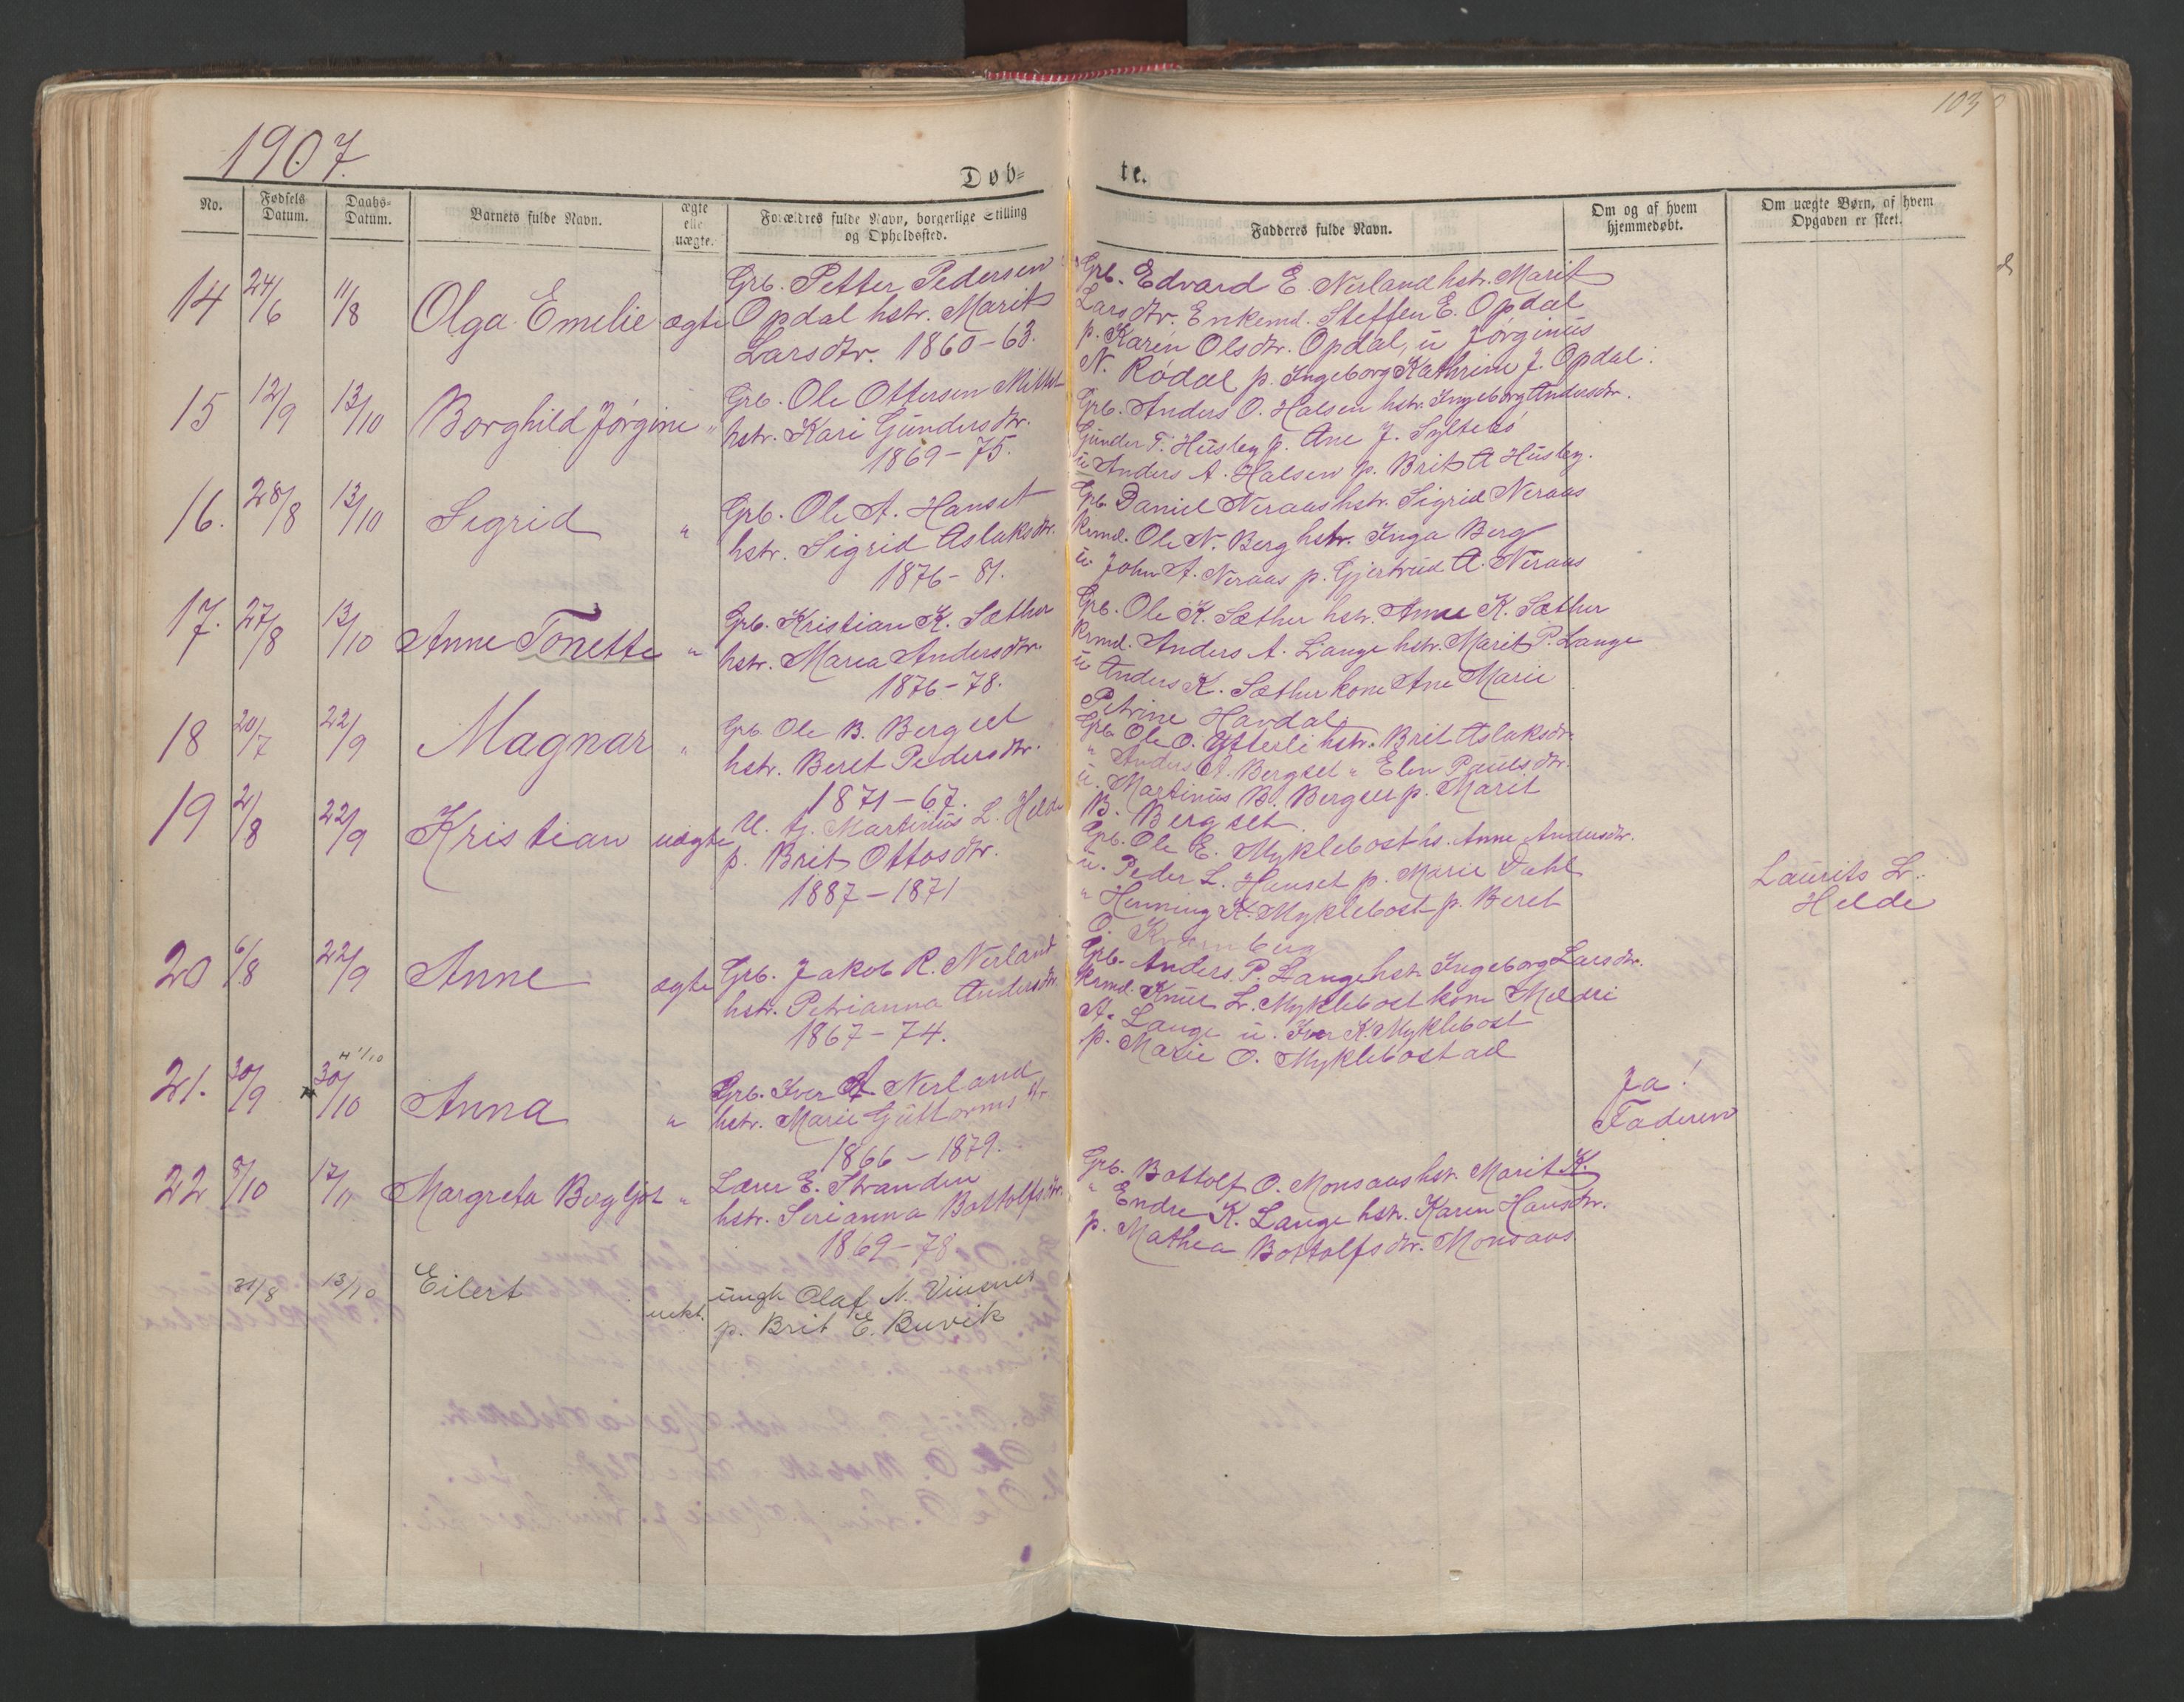 103
1907.
Døb=
te.
No.
Fødsels Datum.
Daabs= Datum.
Barnets fulde Navn.
ægte eller uægte.
Forældres fulde Navn, borgerlige Stilling og Opholdssted.
Fadderes fulde Navn.
Om og af hvem hjemmedøbt.
Om uægte Børn, af hvem Opgaven er skeet.
14 24/6 11/8 Olga Emelie ægte
Grb. Petter Pedersen
Opdal hstr. Marit
Larsdtr. 1860-63.
Grb. Edvard E. Nerland hstr. Marit
Larsdtr. Enkemd. Steffen E. Opdal
p. Karen Olsdtr. Opdal, u Jørginus
N. Rødal p. Ingeborg Kathrine J. Opdal.
15 12/9 13/10 Borghild Jørgine "
Grb. Ole Ottersen
hstr. Kari Gundersdtr.
1869-75.
Grb. Anders O. Halsen hstr. Ingeborg Andersdtr.
Gunder T. Husby p. Ane J. Syltebø
u Anders A. Halsen p. Brit A Husby.
16. 28/8 13/10 Sigrid "
Grb. Ole A. Hanset
hstr. Sigrid Aslaksdtr.
1876-81.
Grb. Daniel Neraas hstr. Sigrid Neraas
Krmd. Ole N. Berg hstr. Inga Berg
u. John A. Neraas p. Gjertrud A. Neraas
17. 27/8 13/10 Anne Tonette "
Grb. Kristian K. Sæther
hstr. Marea Andersdtr.
1876-78.
Grb. Ole K. Sæther hstr. Anne K. Sæther
Krmd. Anders A. Lange hstr. Marit P. Lange
u Anders K. Sæther kone Ane Marie
Petrine Havdal.
18 20/7 22/9 Magnar "
Grb. Ole B. Bergset
hstr. Beret Pedersdtr.
1871-67.
Grb. Ole O. Ytterli hstr. Brit Aslaksdtr.
" Anders A. Bergset " Elen Paulsdtr.
u. Martinus B. Bergset p. Marit
B. Bergset.
19 2/8 22/9 Kristian uægte
U. Martinus L. Helde
p. Brit Ottosdtr.
1887-1871
Grb. Ole E. Myklebost hs. Anne Andersdtr.
u. Peder L. Hanset p. Marie Dahl
" Henning K. Myklebost p. Beret
O. Kvernberg
Laurits L.
Helde
20 6/8 22/9 Anne ægte
Grb. Jakob R. Nerland
hstr. Petrianna Andersdtr.
1867-74.
Grb. Anders P. Lange hstr. Ingeborg Larsdtr.
Krmd. Knut L. Myklebost kone Meldri
A. Lange u. Iver K. Myklebost
p. Marie O. Myklebostad
21. 30/9 30/10 Anna "
Grb. Iver A. Nerland
hstr. Marie Guttormsdtr.
1866-1879.
Ja!
Faderen
22 8/10 17/11 Margreta Bergljot "
Lærer E. Stranden
hstr. Serianna Bottolfsdtr.
1869-78
Grb. Bottolf O. Monsaas hstr. Marit K.
" Endre K. Lange hstr. Karen Hansdtr.
p. Mathea Bottolfsdtr. Monsaas
31/8 13/10 Eilert uekt.
ungk Olaf N. Vinsnes
p. Brit E. Buvik